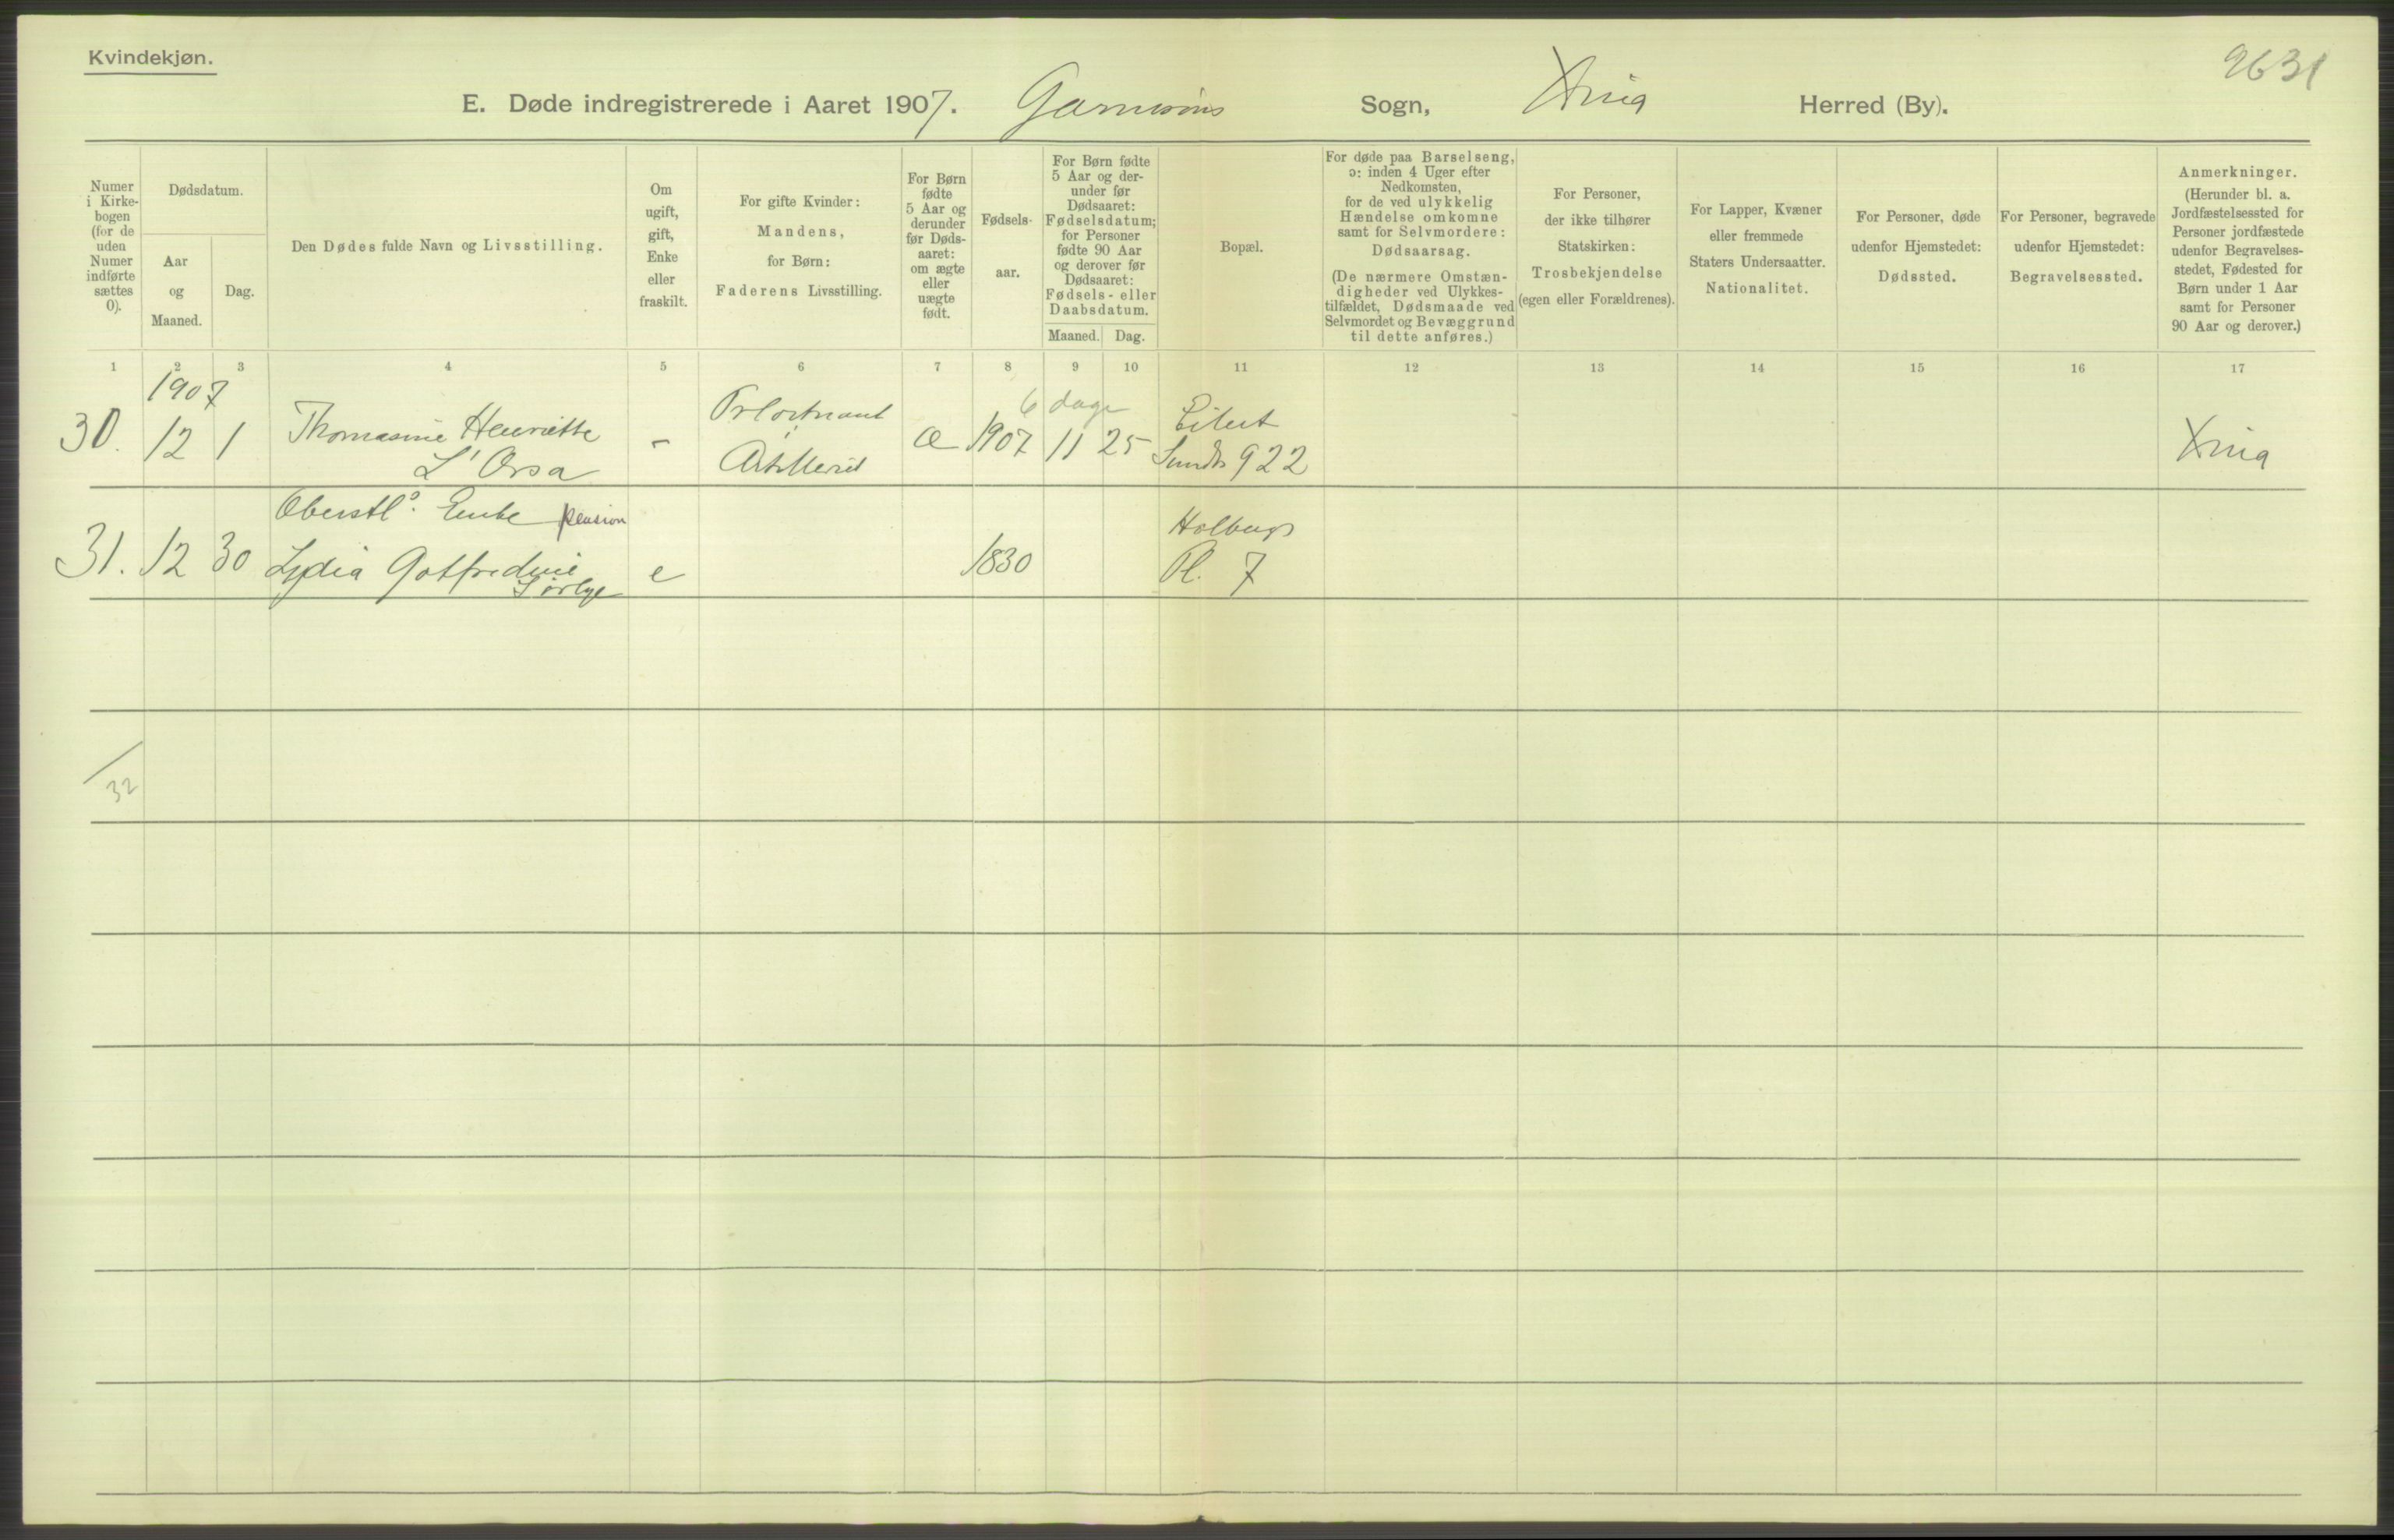 Kvindekjøn.
9631
E. Døde indregistrerede i Aaret 1907. Garnisons Sogn, Xnia Herred (By).
Numer
i Kirke-
bogen
(for de
uden
Numer
indførte
sættes
0).
Dødsdatum.
Aar
og
Maaned.
Dag.
Den Dødes fulde Navn og Livsstilling.
Om
ugift,
gift,
Enke
eller
fraskilt.
For gifte Kvinder:
Mandens,
for Børn:
Faderens Livsstilling.
For Børn
fødte
5 Aar og
derunder
før Døds-
aaret:
om ægte
eller
uægte
født.
Fødsels-
aar.
For Børn fødte
5 Aar og der-
under før
Dødsaaret:
Fødselsdatum;
for Personer
fødte 90 Aar
og derover før
Dødsaaret:
Fødsels- eller
Daabsdatum.
Maaned. Dag.
Bopæl.
For døde paa Barselseng,
ɔ: inden 4 Uger efter
Nedkomsten,
for de ved ulykkelig
Hændelse omkomne
samt for Selvmordere:
Dødsaarsag.
(De nærmere Omstæn-
digheder ved Ulykkes-
tilfældet, Dødsmaade ved
Selvmordet og Bevæggrund
til dette anføres.)
For Personer,
der ikke tilhører
Statskirken:
Trosbekjendelse
(egen eller Forældrenes).
For Lapper, Kvæner
eller fremmede
Staters Undersaatter.
Nationalitet.
For Personer, døde
udenfor Hjemstedet:
Dødssted.
For Personer, begravede
udenfor Hjemstedet:
Begravelsessted.
Anmerkninger.
(Herunder bl. a.
Jordfæstelsessted for
Personer jordfæstede
udenfor Begravelses-
stedet, Fødested for
Børn under 1 Aar
samt for Personer
90 Aar og derover.)
1 2 3 4 5 6 7 8 9 10 11 12 13 14 15 16 17
1907
6 dage
Eilert
30. 12 1 Thomasine Henriette - æ 1907 11 25 Sundts 922 Xnia
L'Orsa Artilleriet
Oberstl. Enke pension
Holbergs
31. 12 30 Lydia Gotfredine e 1830 Pl. 7
Sørbye
32